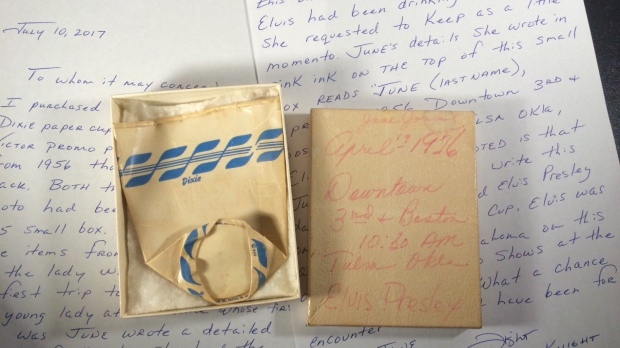 July 10, 2017
To whom it may concern
I purchased
Dixie paper cup
Victor promo p
from 1956 tha
ack. Both t
oto had bee
s small box.
e items from
the lady w
first trip to
young lady at
whose fir
was June wrote a detailed
Elvis had been drinking
She requested to keep as a little
momento. June's details she wrote in
pink ink on the top of this small
ox reads "June (last name),
Downtown 3rd +
Okla,
oted is that
write this
d Elvis Presley
cup. Elvis was
ahoma on this
shows at the
what a chance
have been for
encounter
Dixie
April 13 1956
Downtown
3rd & Boston
10:30 AM
Tulsa Okla
Elvis Presley